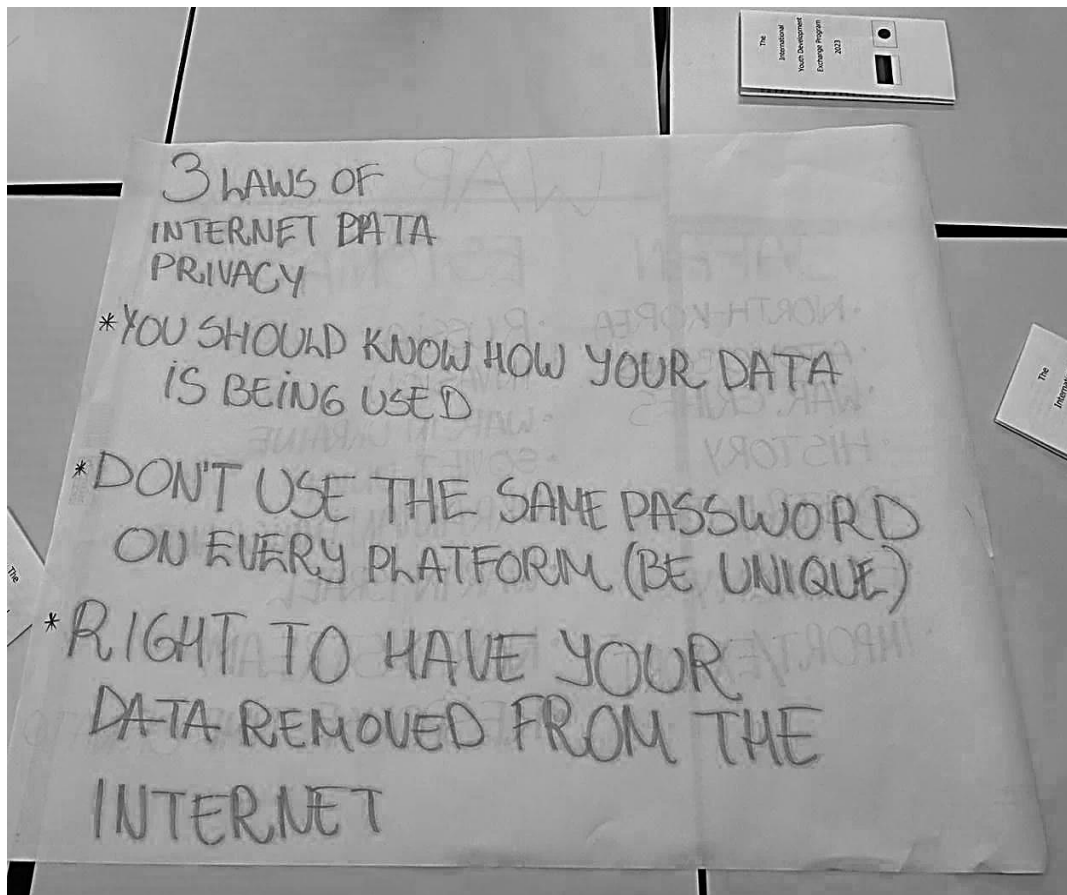 The
International
Youth Development
Exchange Program
2023
3 LAWS OF
INTERNET DATA
PRIVACY
*YOU SHOULD KNOW HOW YOUR DATA
IS BEING USED
*DON'T USE THE SAME PASSWORD
ON EVERY PLATFORM (BE UNIQUE)
*RIGHT TO HAVE YOUR
DATA REMOVED FROM THE
INTERNET
The
The
WAR
JAPAN ESTONIA
•NORTH-KOREA
WAR CRIMES
•WAR IN UKRAINE
•HISTORY
•SOVIET